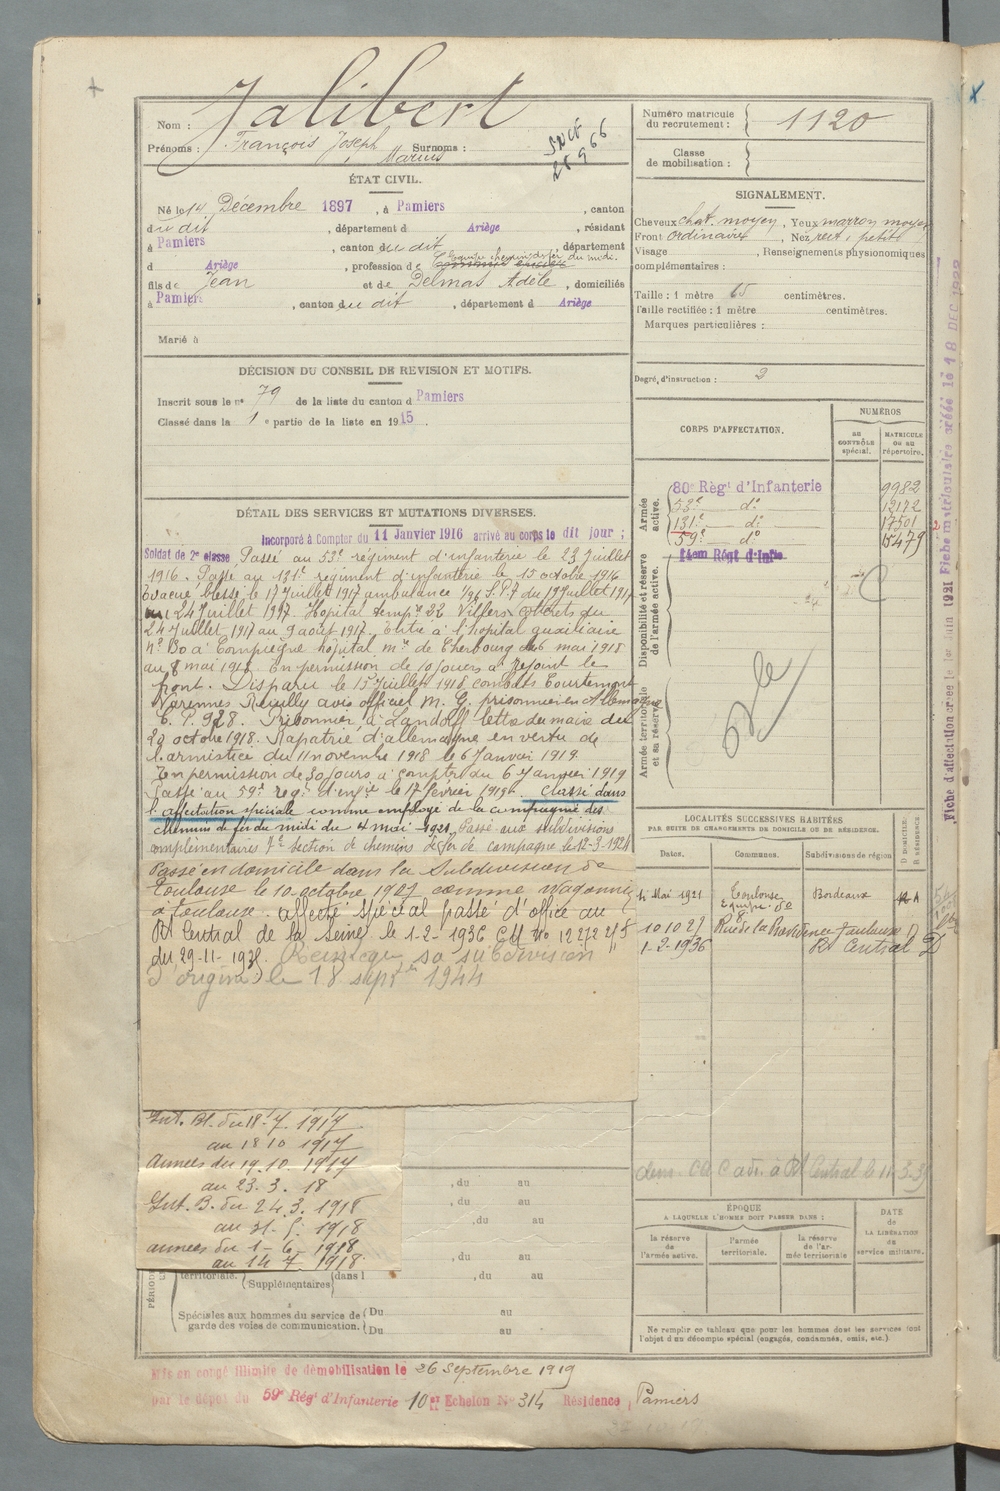 Nom : Jalibert
Prénoms : François Joseph Marius Surnoms :
SNCF
28 9 66
Numéro matricule du recrutement : 1120
Classe de mobilisation :
ÉTAT CIVIL.
Né le 14 Décembre 1897, à Pamiers, canton
du dit, département d Ariège, résidant
à Pamiers, canton du dit, département
d Ariège, profession de chemins de fer du midi.
fils de Jean et de Delmas Adèle, domiciliés
à Pamiers, canton du dit, département d Ariège
Marié à
SIGNALEMENT.
Cheveux chat. moyen, Yeux marron moyen
Front ordinaire, Nez rect. petit
Visage , Renseignements physionomiques
complémentaires :
Taille : 1 mètre 65 centimètres.
Taille rectifiée : 1 mètre centimètres.
Marques particulières :
Degré d'instruction : 3
DÉCISION DU CONSEIL DE REVISION ET MOTIFS.
Inscrit sous le n° 79 de la liste du canton d Pamiers
Classé dans la 1e partie de la liste en 1915.
CORPS D'AFFECTATION.
NUMÉROS
AU CONTRÔLE spécial.
MATRICULE OU AU répertoire.
Armée active.
80e Régt d'Infanterie 9982
53e do 12172
131e do 17501
59e do 15479
Disponibilité et réserve de l'armée active.
14em Régt d'Infie
Armée territoriale et sa réserve.
DÉTAIL DES SERVICES ET MUTATIONS DIVERSES.
Incorporé à Compter du 11 Janvier 1916 arrivé au corps le dit jour ;
Soldat de 2e classe Passé au 53e régiment d'infanterie le 23 Juillet
1916. Passé au 131e régiment d'infanterie le 15 octobre 1916
Evacué blessé le 17 Juillet 1917 ambulance S.P. du 19 Juillet 1917
24 Juillet 1917. Hopital tempre 22 Villers Cotterets du
24 Juillet 1917 au 9 août 1917. Entré à l'hopital auxiliaire
n° 30 à Compiègne hopital me de Cherbourg 6 mai 1918
au 8 mai 1918. En permission de 10 jours a rejoint le
front. Disparu le 15 Juillet 1918 combats Courtemont
Varennes Reuilly avis officiel M. G. prisonnier en Allemagne
C. P. 928. Prisonnier à Landoff lettre du maire du
29 octobre 1918. Rapatrié d'allemagne en vertu de
l'armistice du 11 novembre 1918 le 6 Janvier 1919.
En permission de 30 jours à compter du 6 Janvier 1919
Passé au 59e reg. d'infie le 17 février 1919. Classé dans
l'affectation spéciale comme employé de la compagnie des
chemins de fer du midi du 4 mai 1921. Passé aux subdivisions
complémentaires 7e section de chemins de fer de campagne le 12-3-1924
Passé en domicile dans la Subdivision de
Toulouse le 10 octobre 1927 comme
à toulouse. affecté spécial passé d'office au
Rt Central de la Seine le 1-2-1936 CM no
du 29-11- Reintegre sa subdivision
d'origine le 18 septre 1944
Fiche d'affectation créée le 1er Juin 1921
Fiche matriculaire créée le 18 DEC 1922
LOCALITÉS SUCCESSIVES HABITÉES
PAR SUITE DE CHANGEMENTS DE DOMICILE OU DE RÉSIDENCE.
Dates. Communes. Subdivisions de région D DOMICILE. R RÉSIDENCE
4 Mai 1921 Toulouse Bordeaux
10 10 27 Rue de la Providence Toulouse D
1-2-1936 Rt Central D
à Rt Central le 11-3-39
Int. Bl. du 18-7. 1917
au 18 10 1917
Armées du 19.10. 1917
au 23. 3. 18
Int. B. du 24. 3. 1918
au 31. 5. 1918
armées du 1-6. 1918
au 14 7 1918
, du au
, du au
, du au
, du au
territoriale. Supplémentaires dans l , du au
Spéciales aux hommes du service de garde des voies de communication. Du au
Du au
ÉPOQUE
A LAQUELLE L'HOMME DOIT PASSER DANS :
la réserve de l'armée active.
l'armée territoriale.
la réserve de l'armée territoriale
DATE DE LA LIBÉRATION du service militaire.
Ne remplir ce tableau que pour les hommes dont les services font l'objet d'un décompte spécial (engagés, condamnés, omis, etc.)
Mis en congé illimité de démobilisation le 26 Septembre 1919
par le dépôt du 59e Régt d'Infanterie 10er Echelon N° 314 Résidence Pamiers